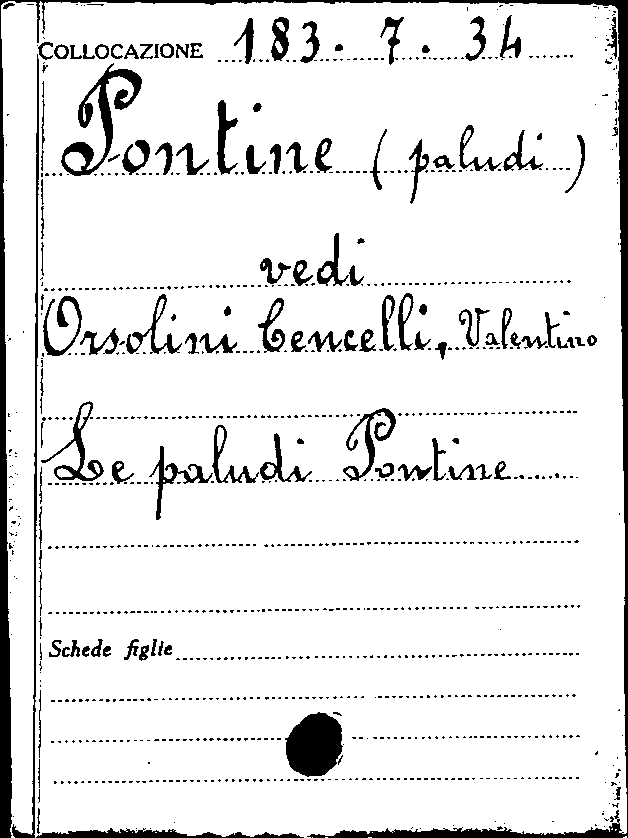 COLLOCAZIONE 183. 7. 34
Pontine (paludi)
vedi
Orsolini Cencelli, Valentino
Le paludi Pontine
Schede figlie